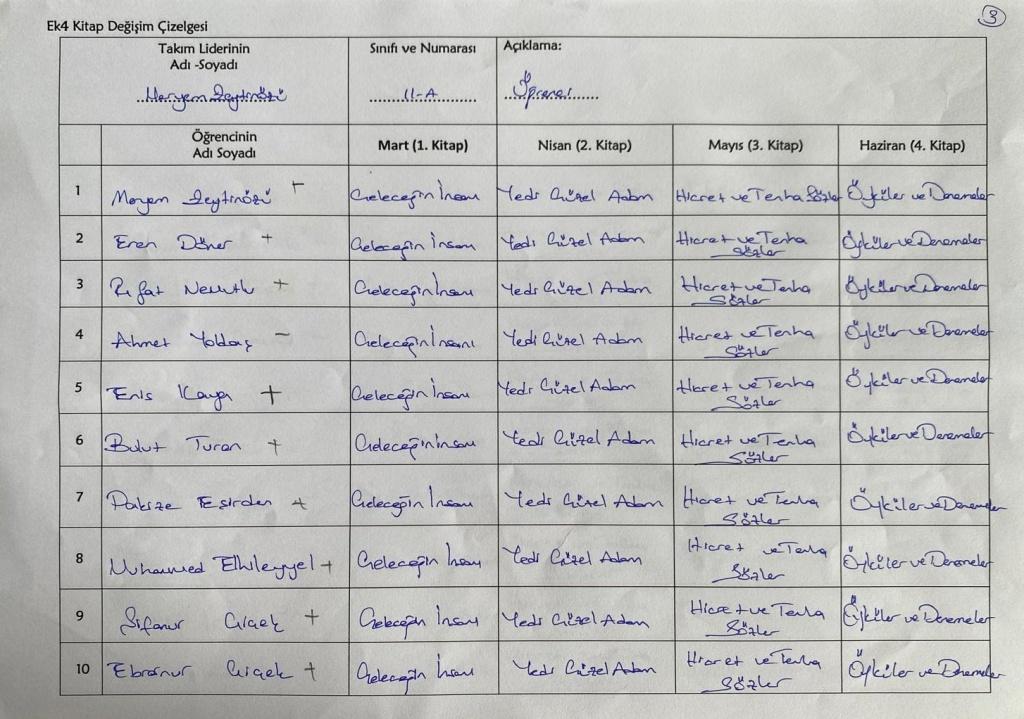 3
Ek4 Kitap Değişim Çizelgesi
Takım Liderinin
Adı -Soyadı
Sınıfı ve Numarası
Açıklama:
Meryem Zeytinözü
11-A
Öğrenci
Öğrencinin
Adı Soyadı
Mart (1. Kitap)
Nisan (2. Kitap)
Mayıs (3. Kitap)
Haziran (4. Kitap)
1 Meryem Zeytinözü + Geleceğin İnsanı Yedi Güzel Adam Hicret ve Tenha Sözler Öyküler ve Denemeler
2 Eren Döner + Geleceğin İnsanı Yedi Güzel Adam Hicret ve Tenha
Sözler Öyküler ve Denemeler
3 Rıfat + Geleceğin İnsanı Yedi Güzel Adam Hicret ve Tenha
Sözler Öyküler ve Denemeler
4 Ahmet Yoldaş - Geleceğin İnsanı Yedi Güzel Adam Hicret ve Tenha
Sözler Öyküler ve Denemeler
5 Enis Kaya + Geleceğin İnsanı Yedi Güzel Adam Hicret ve Tenha
Sözler Öyküler ve Denemeler
6 Bulut Turan + Geleceğin İnsanı Yedi Güzel Adam Hicret ve Tenha
Sözler Öyküler ve Denemeler
7 Pakize Esirden + Geleceğin İnsanı Yedi Güzel Adam Hicret ve Tenha
Sözler Öyküler ve Denemeler
8 Muhammed + Geleceğin İnsanı Yedi Güzel Adam Hicret ve Tenha
Sözler Öyküler ve Denemeler
9 Sifanur Çiçek + Geleceğin İnsanı Yedi Güzel Adam Hicret ve Tenha
Sözler Öyküler ve Denemeler
10 Ebranur Çiçek + Geleceğin İnsanı Yedi Güzel Adam Hicret ve Tenha
Sözler Öyküler ve Denemeler